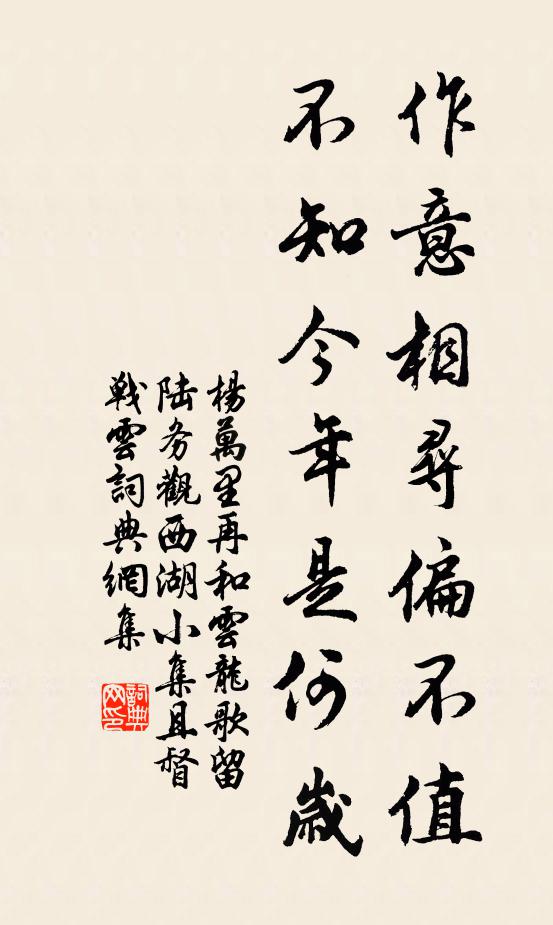 作意相尋偏不值
不知今年是何歲
楊萬里再和雲龍歌留
陸务觀西湖小集且督
戰雲詞典網集
詞典网印